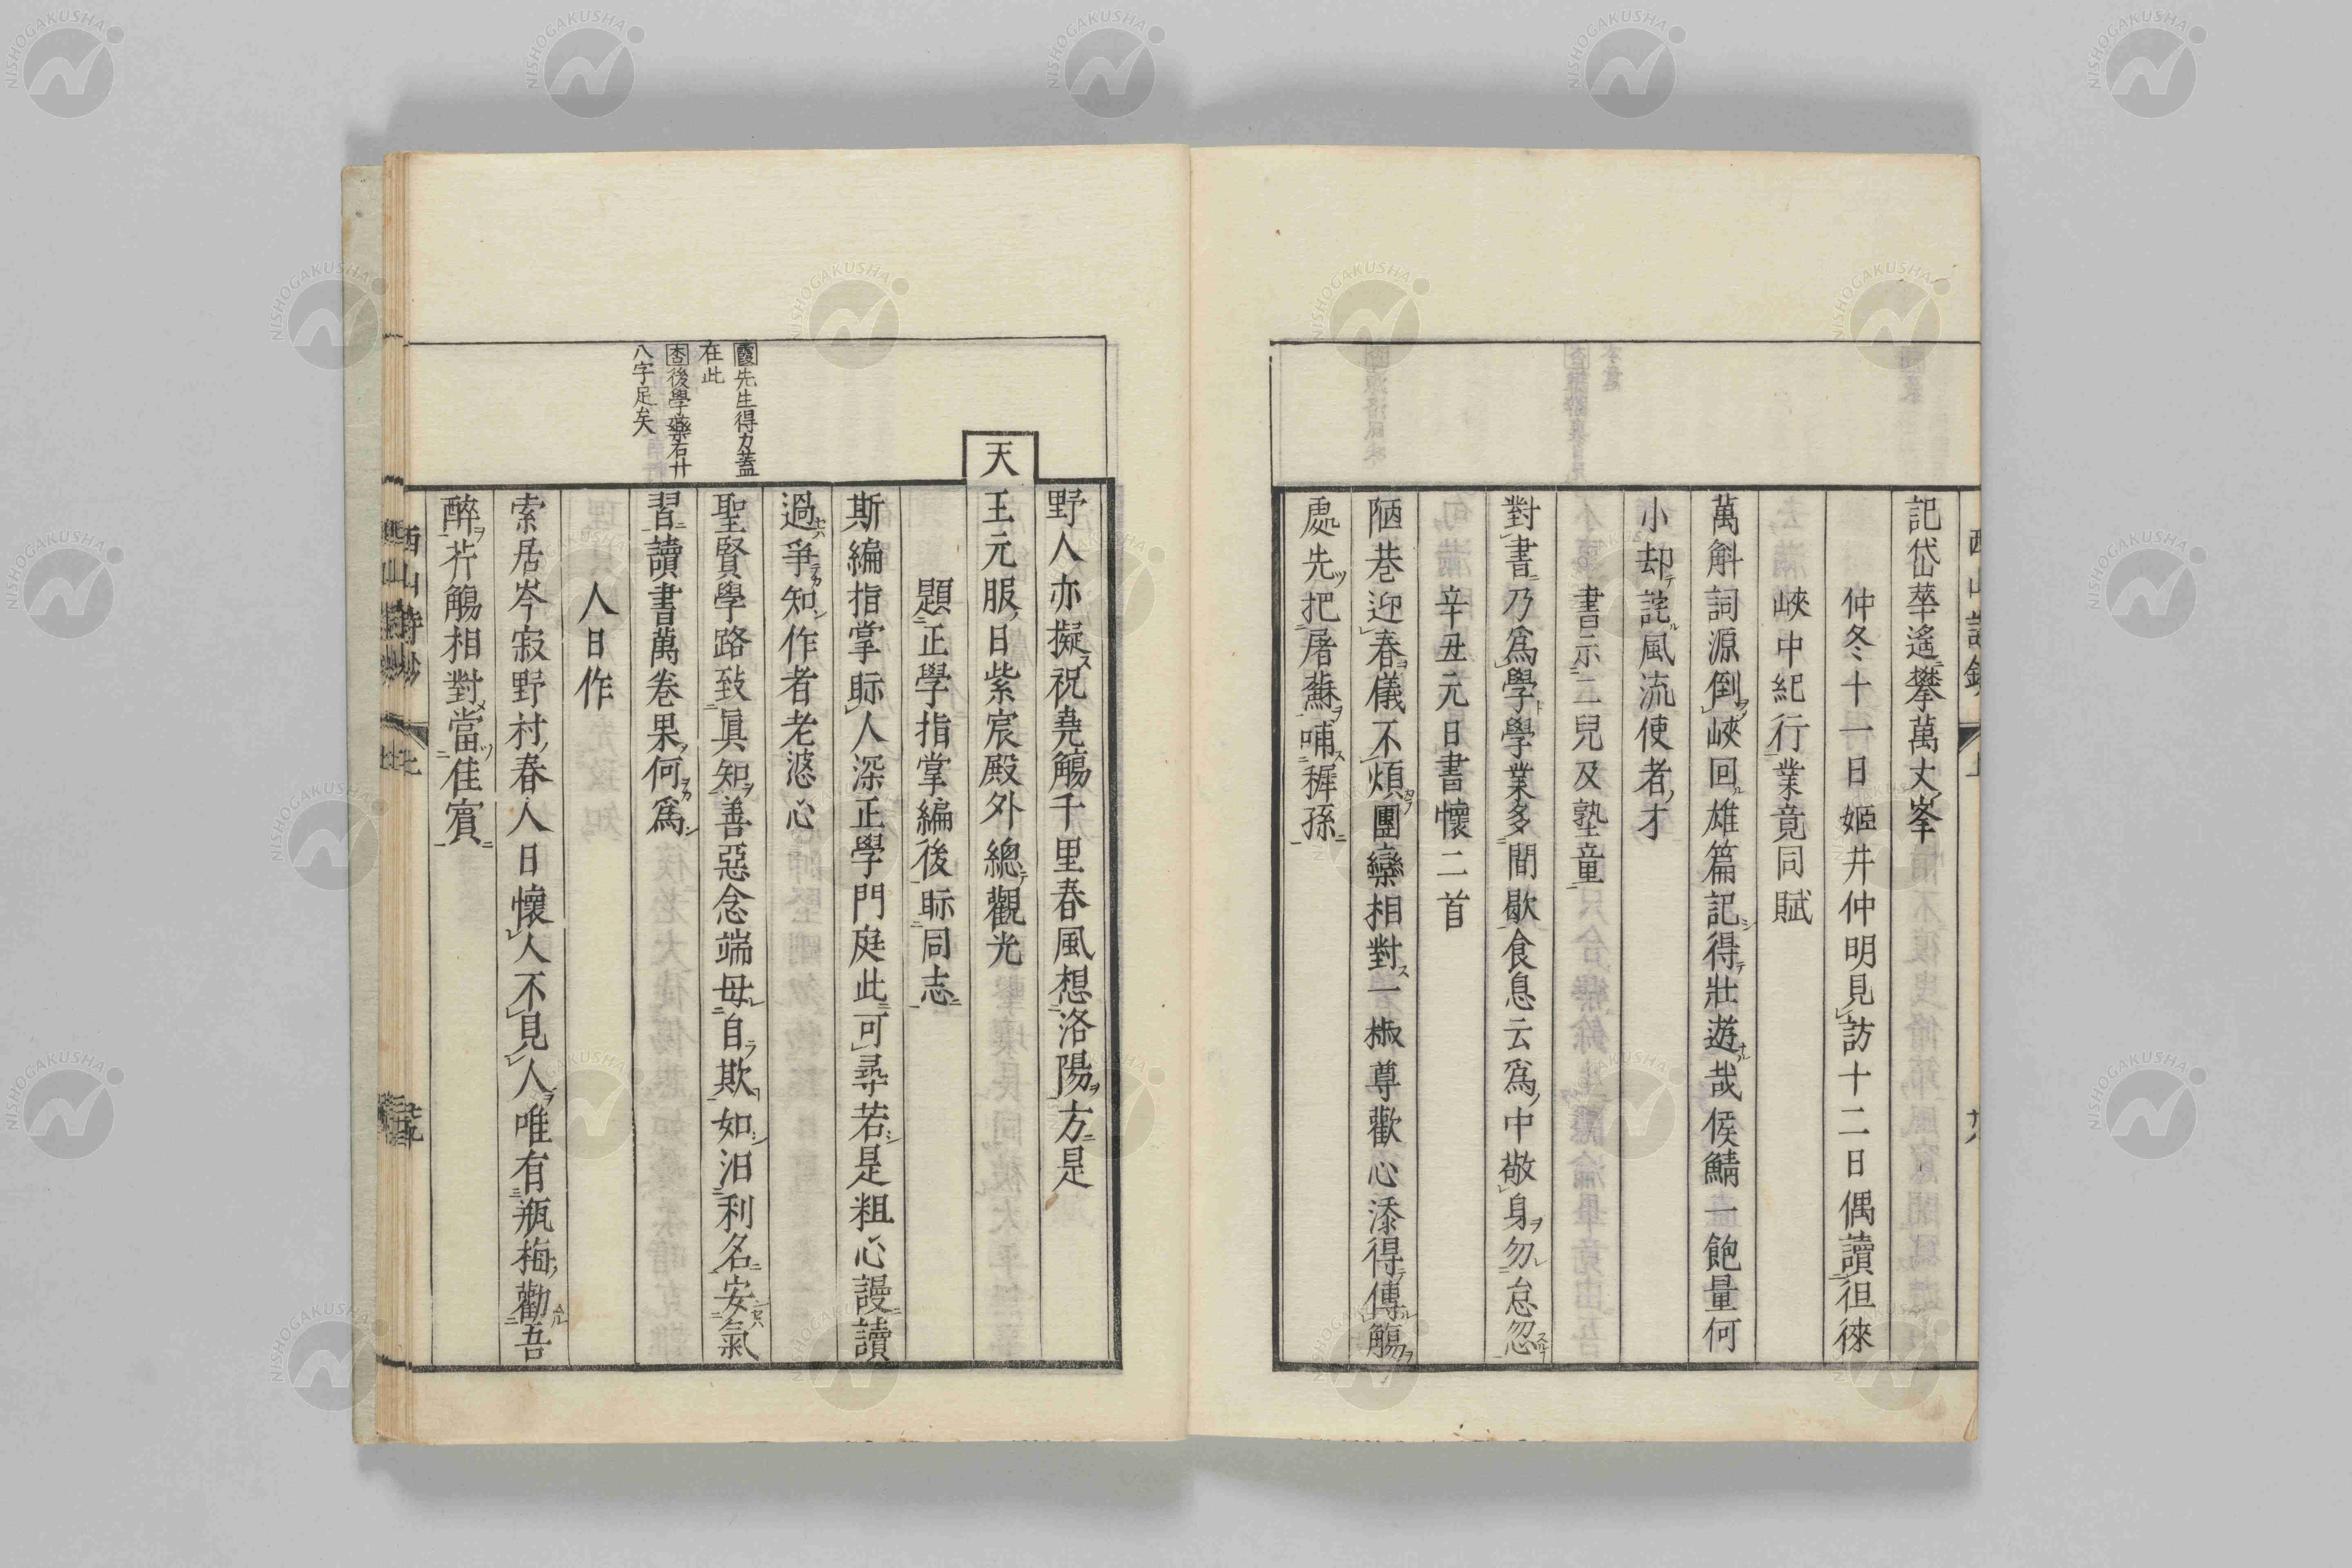 記岱華遙攀萬丈峯
仲冬十一日姬井仲明見訪十二日偶讀徂徠
峽中紀行業竟同賦
萬斛詞源倒峽回雄篇記得壯遊哉侯鯖一飽量何
小却詫風流使者才
書示二兒及塾童
對書乃爲學學業多間歇食息云爲中敬身勿怠忽
辛丑元日書懷二首
陋巷迎春儀不煩團欒相對一椒尊歡心添得傳觴
處先把屠蘇哺穉孫
野人亦擬祝堯觴千里春風想洛陽方是
天王元服日紫宸殿外總觀光
題正學指掌編後眎同志
斯編指掌眎人深正學門庭此可尋若是粗心謾讀
過爭知作者老婆心
聖賢學路致眞知善惡念端毋自欺如汨利名安氣
習讀書萬卷果何爲
人日作
索居岑寂野村春人日懷人不見人唯有瓶梅勸吾
醉芥觴相對當佳賓
霞先生得力蓋
在此
杏後學藥石廿
八字足矣
西山詩鈔
NISHOGAKUSHA